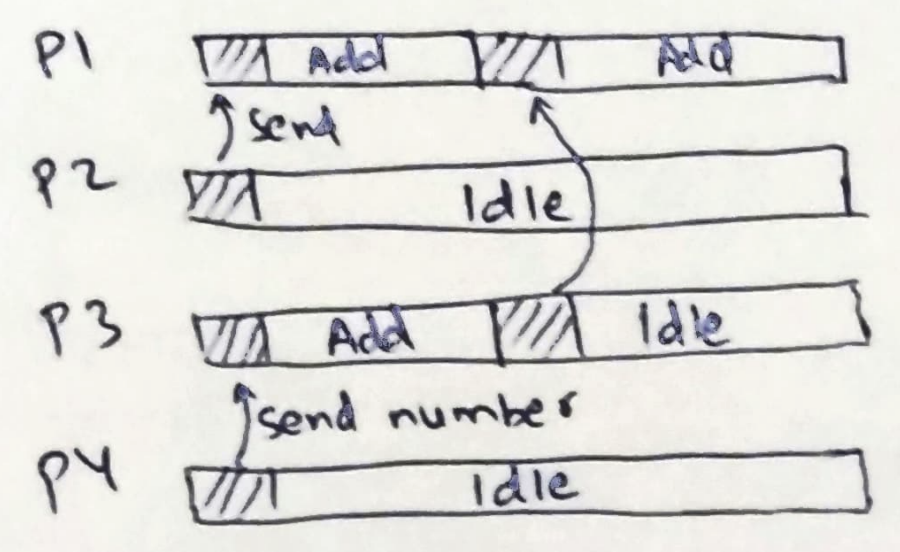 P1 Add Add
send
P2 Idle
P3 Add Idle
send number
P4 Idle